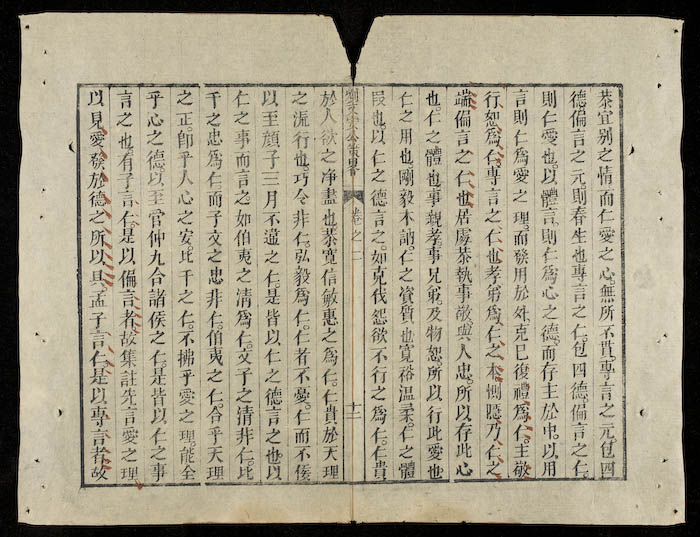 恭宜别之情而仁愛之心無所不貫專言之元包四
德偏言之元則春生也專言之仁包四德偏言之仁
則仁愛也以體言則仁為心之德而存主於中以用
言則仁為愛之理而發用於外克己復禮為仁主敬
行恕為仁專言之仁也孝弟為仁之本惻隱乃仁之
端偏言之仁也居處恭執事敬與人忠所以存此心
也仁之體也事親孝事兄弟及物恕所以行此愛也
仁之用也剛毅木訥仁之資質也寬裕温柔仁之體
段也以仁之德言之如克伐怨欲不行之為仁仁貴
卷之一
十二
於人欲之净盡也恭寬信敏惠之為仁仁貴於天理
之流行也巧令非仁弘毅為仁仁者不憂仁而不佞
以至顔子三月不違之仁是皆以仁之德言之也以
仁之事而言之如伯夷之清為仁文子之清非仁比
干之忠為仁而子文之忠非仁伯夷之仁合乎天理
之正即乎人心之安比干之仁不拂乎愛之理能全
乎心之德以至管仲九合諸侯之仁是皆以仁之事
言之也有子言仁是以偏言者故集註先言愛之理
以見愛發於德之所以具孟子言仁是以專言者故